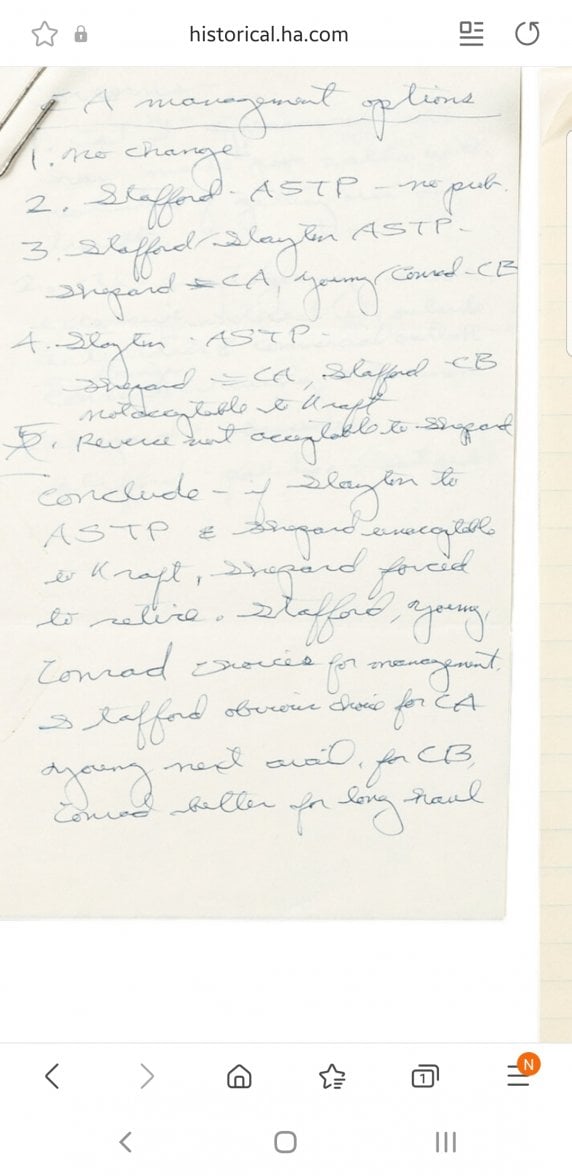 historical.ha.com
CA management options
1. no change
2. Stafford - ASTP - no pub.
3. Stafford/Slayton ASTP -
Shepard = CA, Young/Conrad - CB
4. Slayton - ASTP -
Shepard = CA, Stafford - CB
not acceptable to Kraft
5. Reverse not acceptable to Shepard
Conclude - if Slayton to
ASTP & Shepard unacceptable
to Kraft, Shepard forced
to retire. Stafford, Young,
Conrad choices for management.
Stafford obvious choice for CA
Young next avail. for CB,
Conrad better for long haul
1
N